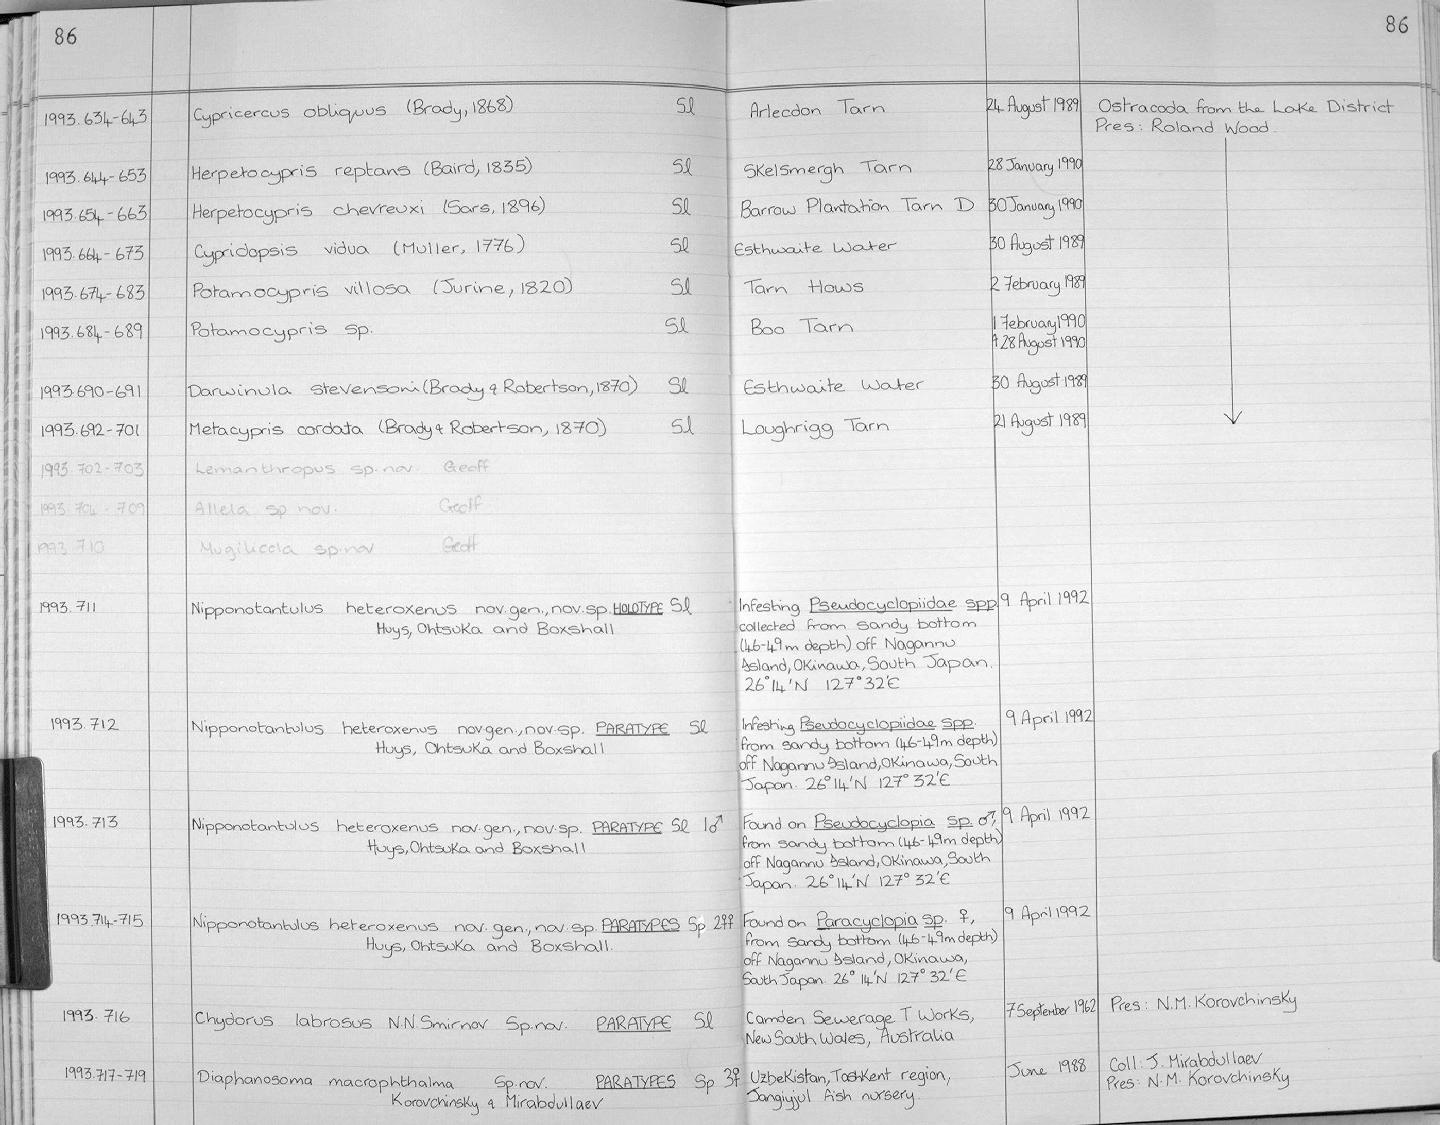 86
86
1993.634-643 Cypricercus obliquus (Brady, 1868) Sl Arlecdon Tarn 24 August 1989 Ostracoda from the Lake District
Pres: Roland Wood.
1993.644-653 Herpetocypris reptans (Baird, 1835) Sl Skelsmergh Tarn 28 January 1990
1993.654-663 Herpetocypris chevreuxi (Sars, 1896) Sl Barrow Plantation Tarn D 30 January 1990
1993.664-673 Cypridopsis vidua (Muller, 1776) Sl Esthwaite Water 30 August 1989
1993.674-683 Potamocypris villosa (Jurine, 1820) Sl Tarn Hows 2 February 1989
1993.684-689 Potamocypris sp. Sl Boo Tarn 1 February 1990
& 28 August 1990
1993.690-691 Darwinula stevensoni (Brady & Robertson, 1870) Sl Esthwaite Water 30 August 1989
1993.692-701 Metacypris cordata (Brady & Robertson, 1870) Sl Loughrigg Tarn 21 August 1989
1993.702-703 Lemanthropus sp.nov. Geoff
1993.704-709 Allela sp nov. Geoff
1993.710 Mugilicola sp.nov Geoff
1993.711 Nipponotantulus heteroxenus nov.gen., nov.sp. HOLOTYPE Sl Infesting Pseudocyclopiidae spp 9 April 1992
Huys, Ohtsuka and Boxshall collected from sandy bottom
(46-49m depth) off Nagannu
Island, Okinawa, South Japan.
26°14'N 127°32'E
1993.712 Nipponotantulus heteroxenus nov.gen., nov.sp. PARATYPE Sl Infesting Pseudocyclopiidae spp. 9 April 1992
Huys, Ohtsuka and Boxshall from sandy bottom (46-49m depth)
off Nagannu Island, Okinawa, South
Japan. 26°14'N 127°32'E
1993.713 Nipponotantulus heteroxenus nov.gen., nov.sp. PARATYPE Sl 1♂ Found on Pseudocyclopia sp. ♂, 9 April 1992
Huys, Ohtsuka and Boxshall from sandy bottom (46-49m depth)
off Nagannu Island, Okinawa, South
Japan. 26°14'N 127°32'E
1993.714-715 Nipponotantulus heteroxenus nov.gen., nov.sp. PARATYPES Sp 2♀♀ Found on Paracyclopia sp. ♀, 9 April 1992
Huys, Ohtsuka and Boxshall. from sandy bottom (46-49m depth)
off Nagannu Island, Okinawa,
South Japan. 26°14'N 127°32'E
1993.716 Chydorus labrosus N.N.Smirnov Sp.nov. PARATYPE Sl Camden Sewerage T Works, 7 September 1962 Pres: N.M. Korovchinsky
New South Wales, Australia
1993.717-719 Diaphanosoma macrophthalma Sp.nov. PARATYPES Sp 3♀ Uzbekistan, Tashkent region, June 1988 Coll: J. Mirabdullaev
Korovchinsky & Mirabdullaev Jangiyul fish nursery. Pres: N.M. Korovchinsky